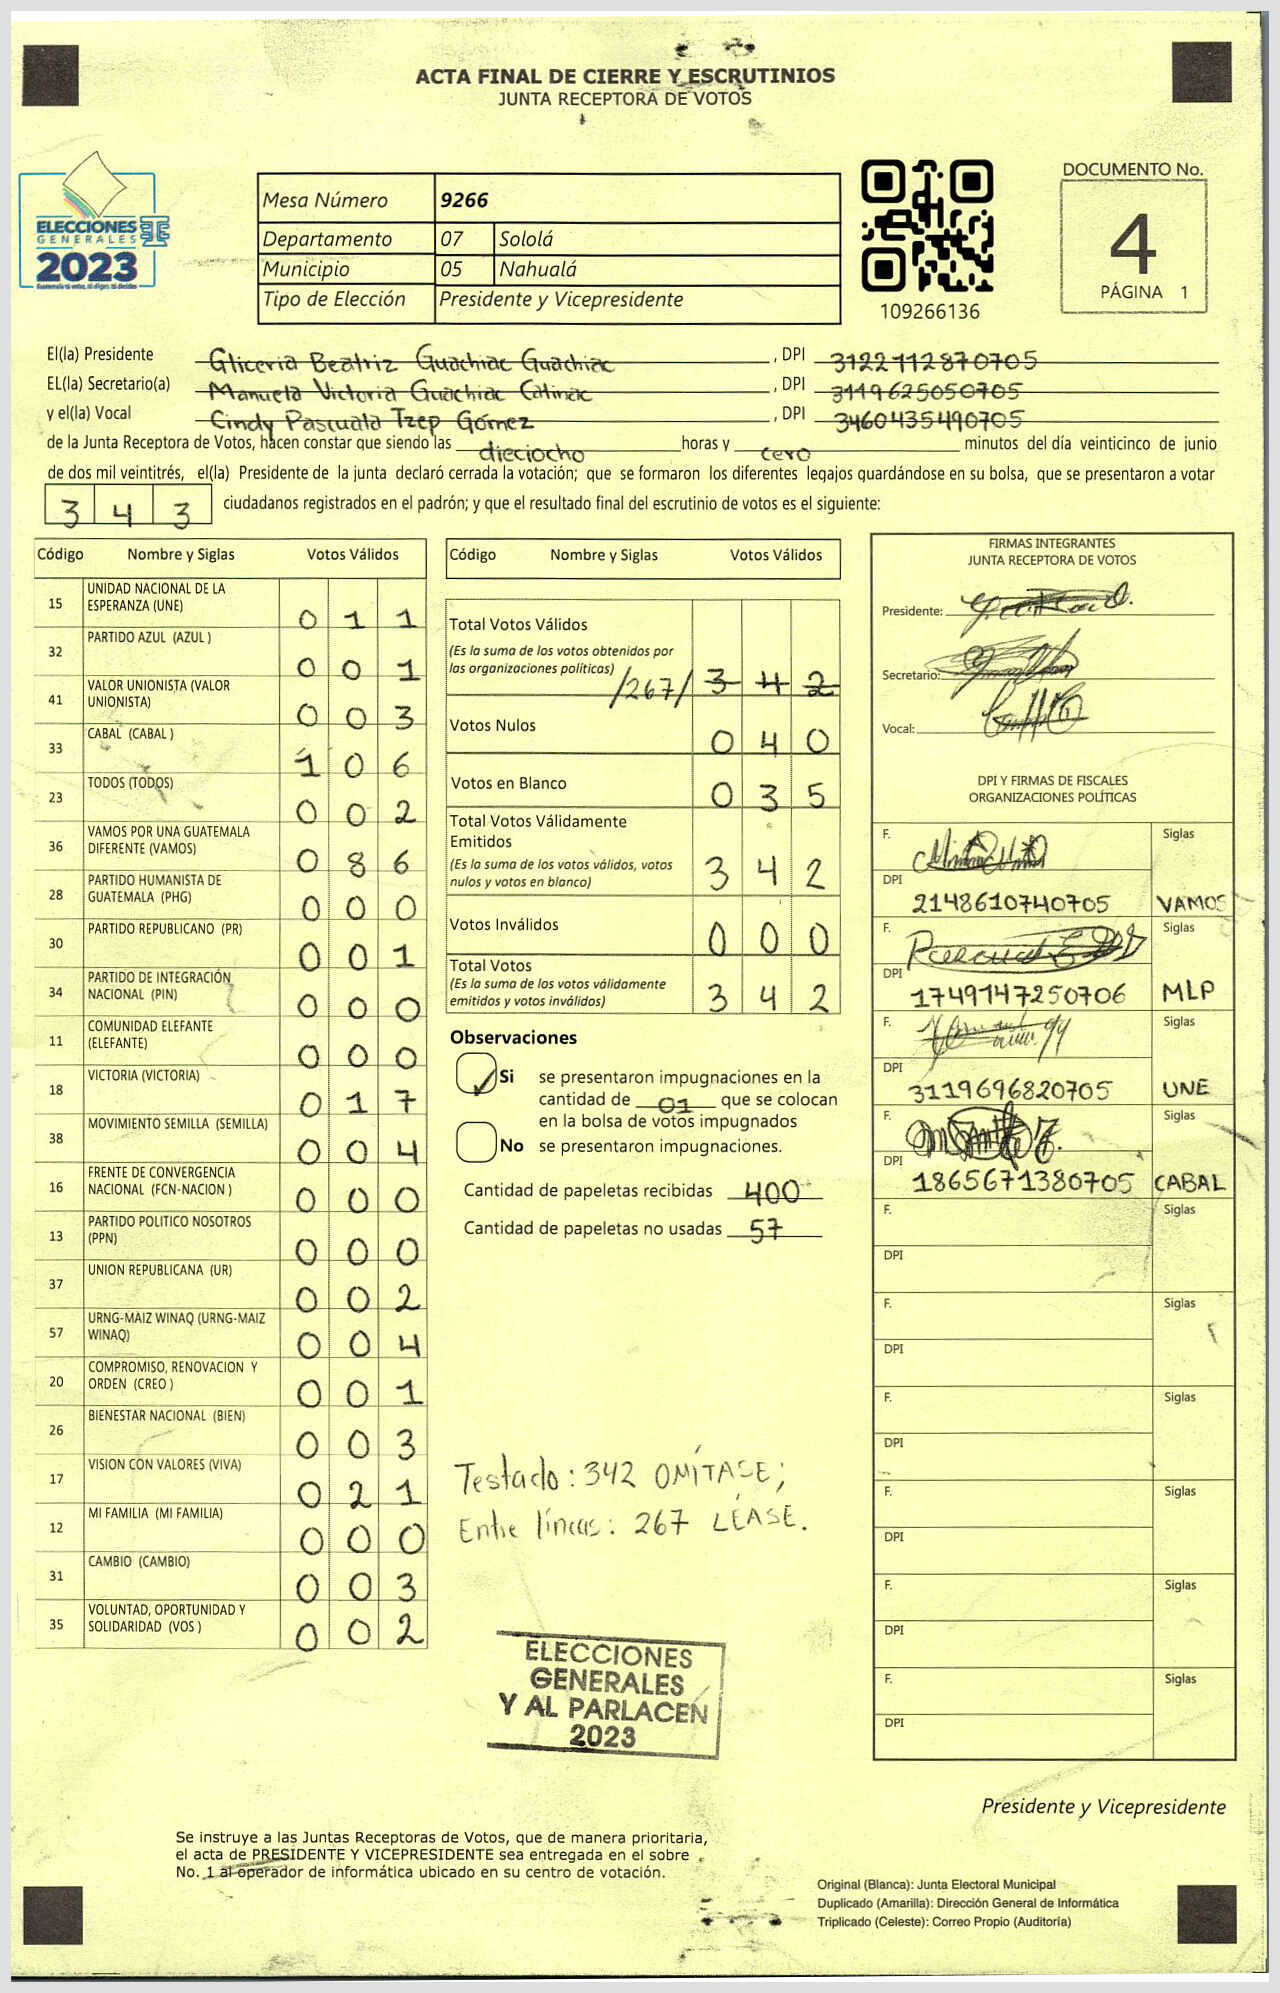 ACTA FINAL DE CIERRE Y ESCRUTINIOS
JUNTA RECEPTORA DE VOTOS
ELECCIONES
GENERALES
2023
Mesa Número 9266
Departamento 07 Sololá
Municipio 05 Nahualá
Tipo de Elección Presidente y Vicepresidente
109266136
DOCUMENTO No.
4
PÁGINA 1
El(la) Presidente Gliceria Beatriz Guachiac Guachiac, DPI 3122112870705
EL(la) Secretario(a) Manuela Victoria Guachiac Catinac, DPI 3119625050705
y el(la) Vocal Cindy Pascuala Tzep Gómez, DPI 3460435490705
de la Junta Receptora de Votos, hacen constar que siendo las dieciocho horas y cero minutos del día veinticinco de junio
de dos mil veintitrés, el(la) Presidente de la junta declaró cerrada la votación; que se formaron los diferentes legajos guardándose en su bolsa, que se presentaron a votar
343 ciudadanos registrados en el padrón; y que el resultado final del escrutinio de votos es el siguiente:
Código Nombre y Siglas Votos Válidos
15 UNIDAD NACIONAL DE LA ESPERANZA (UNE) 011
32 PARTIDO AZUL (AZUL ) 001
41 VALOR UNIONISTA (VALOR UNIONISTA) 003
33 CABAL (CABAL ) 106
23 TODOS (TODOS) 002
36 VAMOS POR UNA GUATEMALA DIFERENTE (VAMOS) 086
28 PARTIDO HUMANISTA DE GUATEMALA (PHG) 000
30 PARTIDO REPUBLICANO (PR) 001
34 PARTIDO DE INTEGRACIÓN NACIONAL (PIN) 000
11 COMUNIDAD ELEFANTE (ELEFANTE) 000
18 VICTORIA (VICTORIA) 017
38 MOVIMIENTO SEMILLA (SEMILLA) 004
16 FRENTE DE CONVERGENCIA NACIONAL (FCN-NACION ) 000
13 PARTIDO POLITICO NOSOTROS (PPN) 000
37 UNION REPUBLICANA (UR) 002
57 URNG-MAIZ WINAQ (URNG-MAIZ WINAQ) 004
20 COMPROMISO, RENOVACION Y ORDEN (CREO ) 001
26 BIENESTAR NACIONAL (BIEN) 003
17 VISION CON VALORES (VIVA) 021
12 MI FAMILIA (MI FAMILIA) 000
31 CAMBIO (CAMBIO) 003
35 VOLUNTAD, OPORTUNIDAD Y SOLIDARIDAD (VOS ) 002
Código Nombre y Siglas Votos Válidos
Total Votos Válidos
(Es la suma de los votos obtenidos por
las organizaciones políticas) /267/ 342
Votos Nulos 040
Votos en Blanco 035
Total Votos Válidamente
Emitidos
(Es la suma de los votos válidos, votos
nulos y votos en blanco) 342
Votos Inválidos 000
Total Votos
(Es la suma de los votos válidamente
emitidos y votos inválidos) 342
Observaciones
Si se presentaron impugnaciones en la
cantidad de 01 que se colocan
en la bolsa de votos impugnados
No se presentaron impugnaciones.
Cantidad de papeletas recibidas 400
Cantidad de papeletas no usadas 57
Testado: 342 OMÍTASE;
Entre líneas: 267 LÉASE.
ELECCIONES
GENERALES
Y AL PARLACEN
2023
FIRMAS INTEGRANTES
JUNTA RECEPTORA DE VOTOS
Presidente:
Secretario:
Vocal:
DPI Y FIRMAS DE FISCALES
ORGANIZACIONES POLÍTICAS
F. Siglas
DPI 2148610740705 VAMOS
F. Siglas
DPI 1749147250706 MLP
F. Siglas
DPI 3119696820705 UNE
F. Siglas
DPI 1865671380705 CABAL
F. Siglas
DPI
F. Siglas
DPI
F. Siglas
DPI
F. Siglas
DPI
F. Siglas
DPI
F. Siglas
DPI
Presidente y Vicepresidente
Se instruye a las Juntas Receptoras de Votos, que de manera prioritaria,
el acta de PRESIDENTE Y VICEPRESIDENTE sea entregada en el sobre
No. 1 al operador de informática ubicado en su centro de votación.
Original (Blanca): Junta Electoral Municipal
Duplicado (Amarilla): Dirección General de Informática
Triplicado (Celeste): Correo Propio (Auditoría)